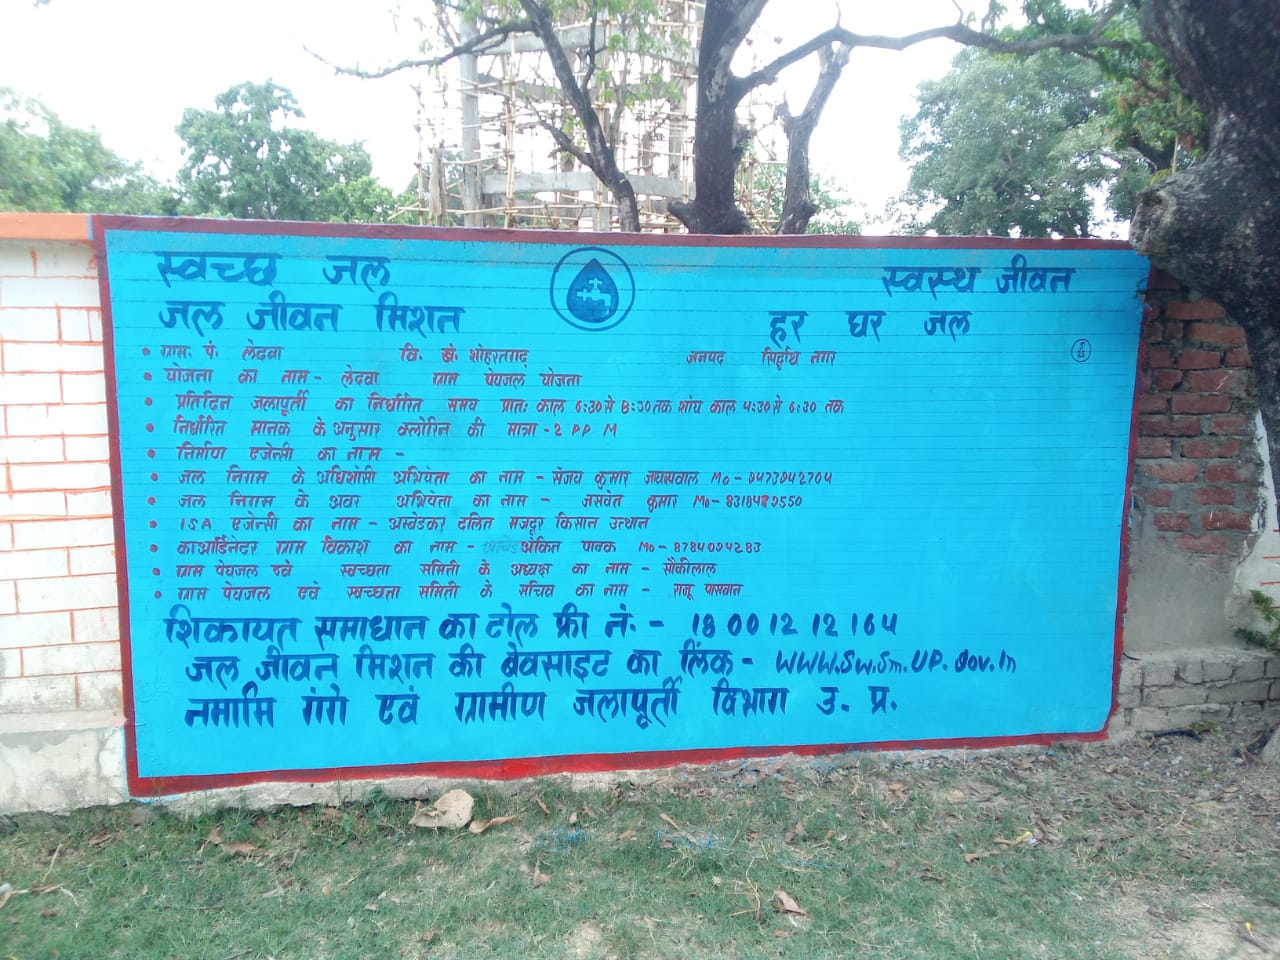 स्वच्छ जल स्वस्थ जीवन
जल जीवन मिशन हर घर जल
ग्राम. पं. लेदवा वि. खं. शोहरतगढ़ जनपद सिद्धार्थ नगर
योजना का नाम - लेदवा ग्राम पेयजल योजना
प्रतिदिन जलापूर्ती का निर्धारित समय प्रात: काल 6:30 से 8:30 तक शांय काल 4:30 से 6:30 तक
निर्धारित मानक के अनुसार क्लोरिन की मात्रा - 2 PP M
निर्माण एजेन्सी का नाम -
जल निगम के अधिशांसी अभियंता का नाम - संजय कुमार जायसवाल Mo - 9473942704
जल निगम के अवर अभियंता का नाम - जसवंत कुमार Mo - 8318489550
ISA एजेन्सी का नाम - अम्बेडकर दलित मजदूर किसान उत्थान
काआर्डिनेटर ग्राम विकाश का नाम - अंकित पाठक Mo - 8784094283
ग्राम पेयजल एवं स्वच्छता समिती के अध्यक्ष का नाम - सौकीलाल
ग्राम पेयजल एवं स्वच्छता समिती के सचिव का नाम - राजू पासवान
शिकायत समाधान का टोल फ्री नं. - 18 00 12 12 164
जल जीवन मिशन की बेवसाइट का लिंक - WWW.Sw.Sm.UP.Gov.In
नमामि गंगे एवं ग्रामीण जलापूर्ती विभाग उ. प्र.